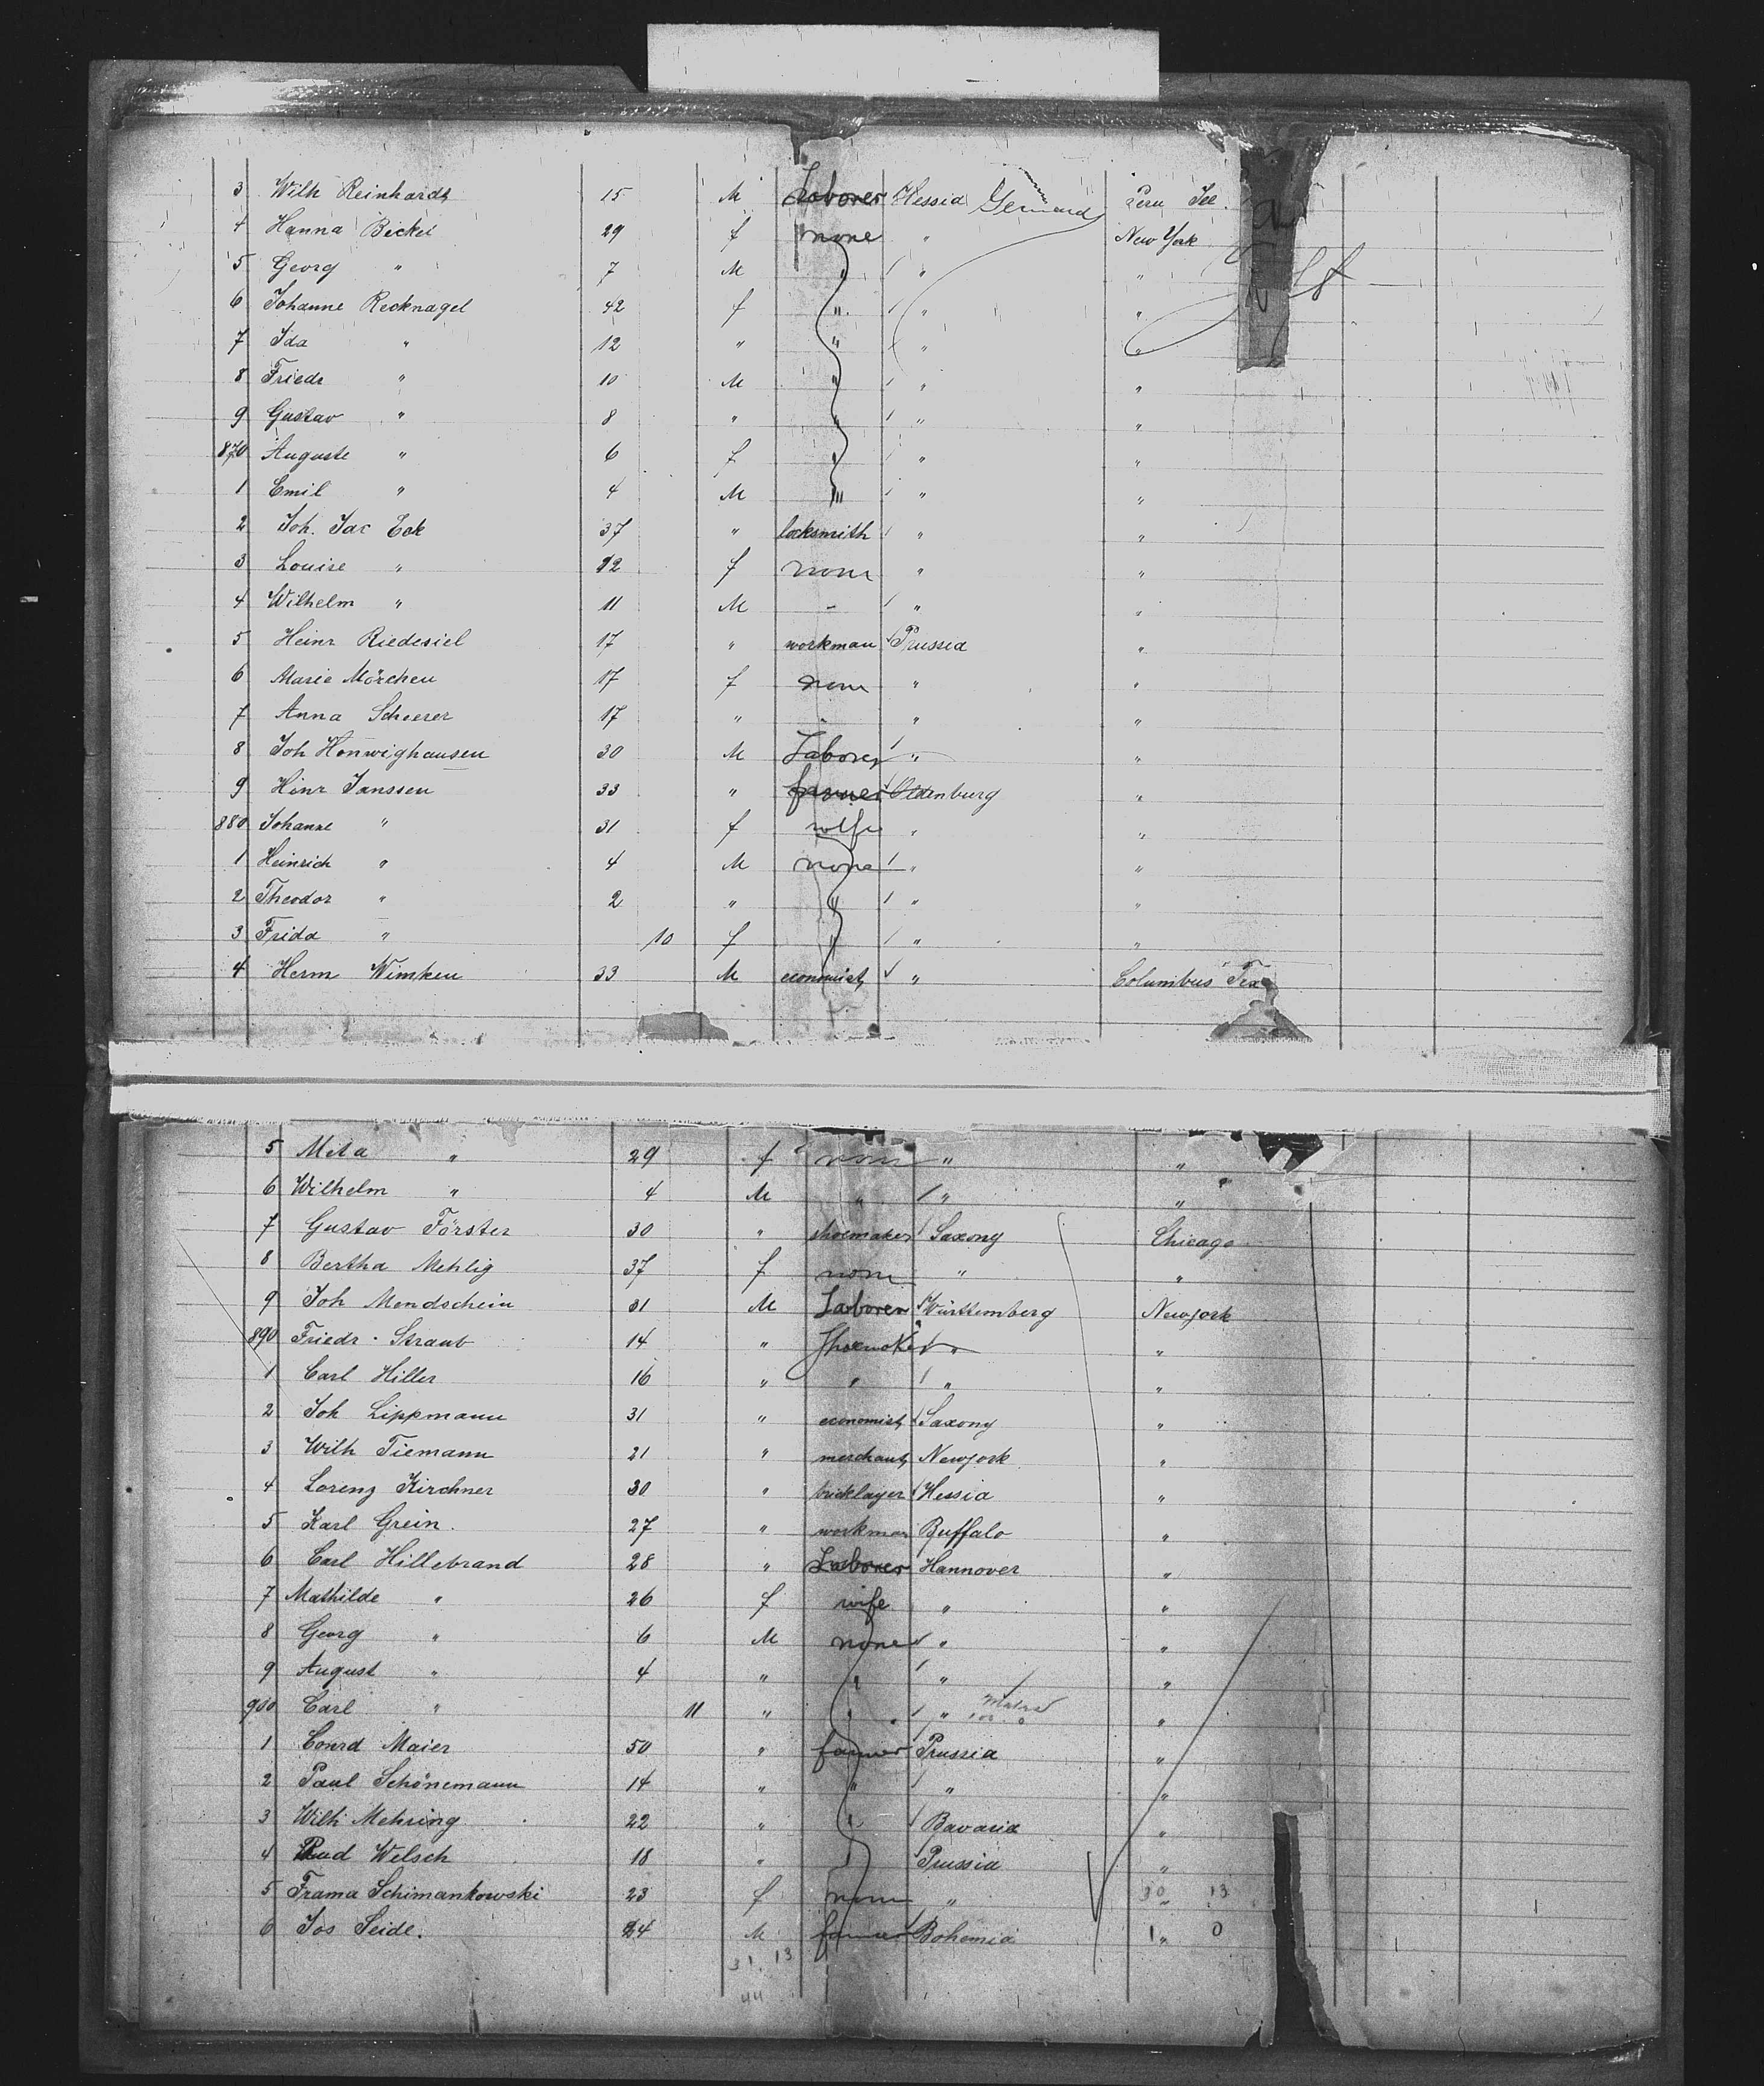 3 Wilh Reinhardt 15 M Laborer Hessia Germany Peru Ill.
4 Hanna Bickel 29 f none " New York
5 Georg " 7 M " " "
6 Johanne Recknagel 42 f " " "
7 Ida " 12 " " " "
8 Friedr " 10 M " " "
9 Gustav " 8 " " " "
870 Auguste " 6 f " " "
1 Emil " 4 M " " "
2 Joh. Jac Eck 37 " locksmith " "
3 Louise " 12 f none " "
4 Wilhelm " 11 M - " "
5 Heinr Riedesiel 17 " workman Prussia "
6 Marie Mörchen 17 f none " "
7 Anna Scheerer 17 " - " "
8 Joh Honwighausen 30 M Laborer " "
9 Hinr Janssen 33 " farmer Oldenburg "
880 Johanne " 31 f wife " "
1 Heinrich " 4 M none " "
2 Theodor " 2 " " " "
3 Frida " 10 f " " "
4 Herm Wimken 33 M economist " Columbus Tex
5 Meta " 29 f none " "
6 Wilhelm " 4 M " " "
7 Gustav Förster 30 " shoemaker Saxony Chicago
8 Bertha Mehlig 37 f none " "
9 Joh Mondschein 31 M Laborer Württemberg New york
890 Friedr. Straub 14 " Shoemaker " "
1 Carl Hiller 16 " " " "
2 Joh Lippmann 31 " economist Saxony "
3 Wilh Tiemann 21 " merchant New york "
4 Lorenz Kirchner 30 " bricklayer Hessia "
5 Karl Grein. 27 " workman Buffalo "
6 Carl Hillebrand 28 " Laborer Hannover "
7 Mathilde " 26 f wife " "
8 Georg " 6 M none " "
9 August " 4 " " " "
900 Carl " 11 " " " "
1 Conrd Maier 50 " farmer Prussia "
2 Paul Schönemann 14 " " " "
3 Wilh Mehring 22 " " Bavaria "
4 Rud Welsch 18 " " Prussia "
5 Frama Schimankowski 23 f none " " 30 13
6 Jos Seide. 24 M farmer Bohemia " 1 0
31. 13
44